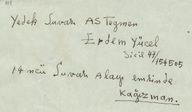 Yedek Suvari AS Teğmen
Erdem Yücel
Sicil 47/
154505
14 ncü Suvari Alayı emrinde
Kağızman.